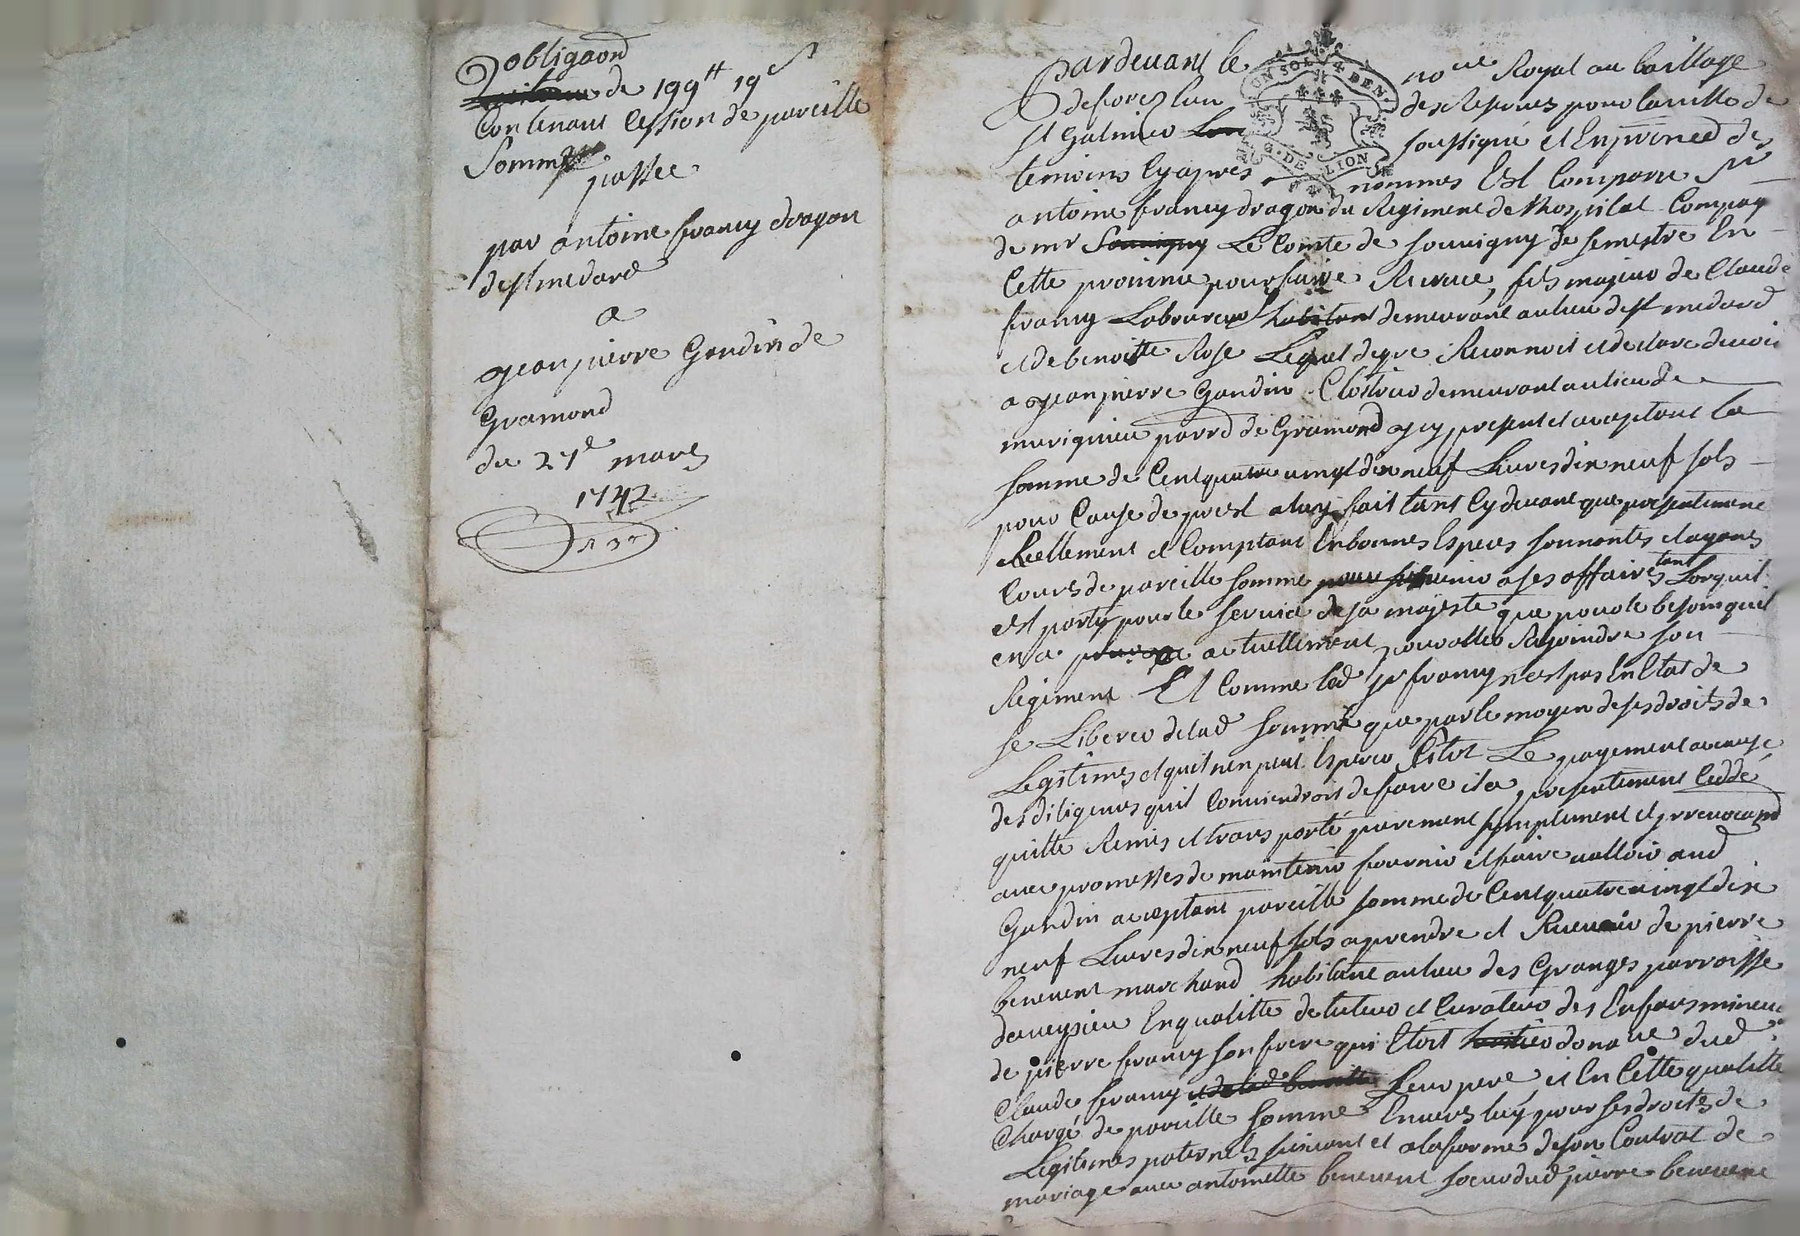 obligaõn
de 199tt 19s
Contenant Cession de pareille
Somme
passée
par antoine francy dragon
de st medard
a
jean pierre Gandin de
Gramond
du 27e mars
1742
Pardevant le no.re Royal au baillage
de forez l'un des Reservés pour la ville de
st Galmier soussigné et En presence des
temoins Cy apres nommés Est Comparu Sr
antoine francy dragon du Regiment de l'hospital Compag
de mr Souvigny Le Comte de Souvigny de semestre En
Cette province pour faire Recrue, fils majeur de Claude
francy Laboureur habitant demeurant au lieu de st medard
et de benoitte Rose Lequel de gre Reconnoit et declare devoir
a jean pierre Gandin Clostrier demeurant au lieu de
marignieu parr.d de Gramond icy present et aceptant la
somme de Cent quatre vingt dix neuf Livres dix neuf sols
pour Cause de prest a luy fait tant Cy devant que presentement
Reellement et Comptant En bonnes Especes sonnantes et ayant
Cours de pareille somme pour a ses affaires tant Lorsquil
est party pour le service de sa majesté que pour le besoin quil
en a actuellement pour aller Rejoindre son
Regiment Et Comme led. sr francy n'est pas En Etat de
se Liberer de lad somme que par le moyen de ses droits de
Legitimes et quil n'en peut Esperer sitot Le payement a cause
des diligences quil Conviendroit de faire il a presentement Ceddé
quitté Remis et transporté purement simplement et irrevocam.d
avec promesses de maintenir fournir et faire valloir aud
Gandin aceptant pareille somme de Cent quatre vingt dix
neuf Livres dix neuf sols a prendre et Recevoir de pierre
benevent marchand habitant au lieu des Granges parroisse
daveysieu En qualitté de tuteur et Curateur des Enfans mineurs
de pierre francy son frere qui Etoit heritier dona.re dud
Claude francy et de lad benoitte Leur pere et En Cette qualitté
Chargé de pareille somme Envers luy pour ses droits de
Legitimes paternels suivant et a la forme de son Contrat de
mariage avec antoinette benevent soeur dud pierre benevent